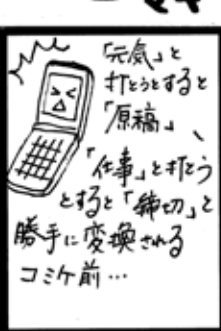 「元気」と
打とうとすると
「原稿」、
「仕事」と打とう
とすると「締切」と
勝手に変換される
コミケ前…